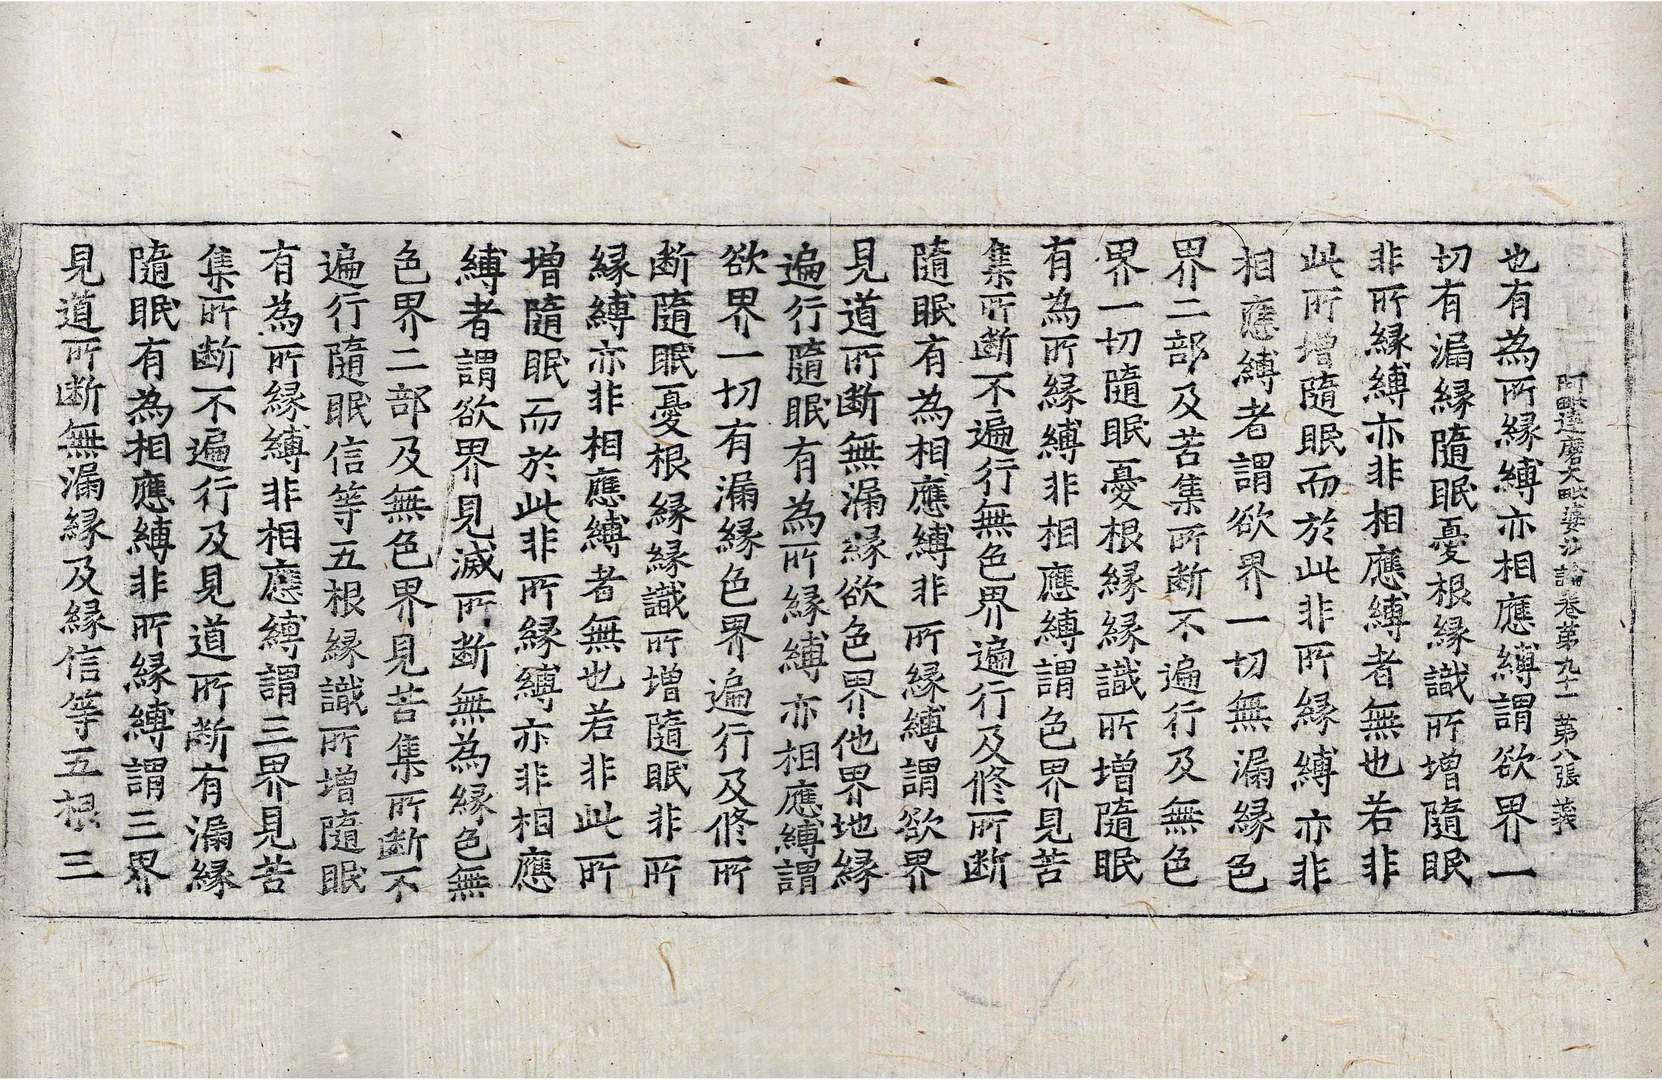 阿毗達磨大毗婆沙論卷第九十一 第八張 義
也有為所縁縛亦相應縛謂欲界一
切有漏縁隨眠憂根縁識所增隨眠
非所縁縛亦非相應縛者無也若非
此所增隨眠而於此非所縁縛亦非
相應縛者謂欲界一切無漏縁色
界二部及苦集所斷不遍行及無色
界一切隨眠憂根縁縁識所增隨眠
有為所縁縛非相應縛謂色界見苦
集所斷不遍行無色界遍行及修所斷
隨眠有為相應縛非所縁縛謂欲界
見道所斷無漏縁欲色界他界地縁
遍行隨眠有為所縁縛亦相應縛謂
欲界一切有漏縁色界遍行及修所
斷隨眠憂根縁縁識所增隨眠非所
縁縛亦非相應縛者無也若非此所
增隨眠而於此非所縁縛亦非相應
縛者謂欲界見滅所斷無為縁色無
色界二部及無色界見苦集所斷不
遍行隨眠信等五根縁識所增隨眠
有為所縁縛非相應縛謂三界見苦
集所斷不遍行及見道所斷有漏縁
隨眠有為相應縛非所縁縛謂三界
見道所斷無漏縁及縁信等五根三